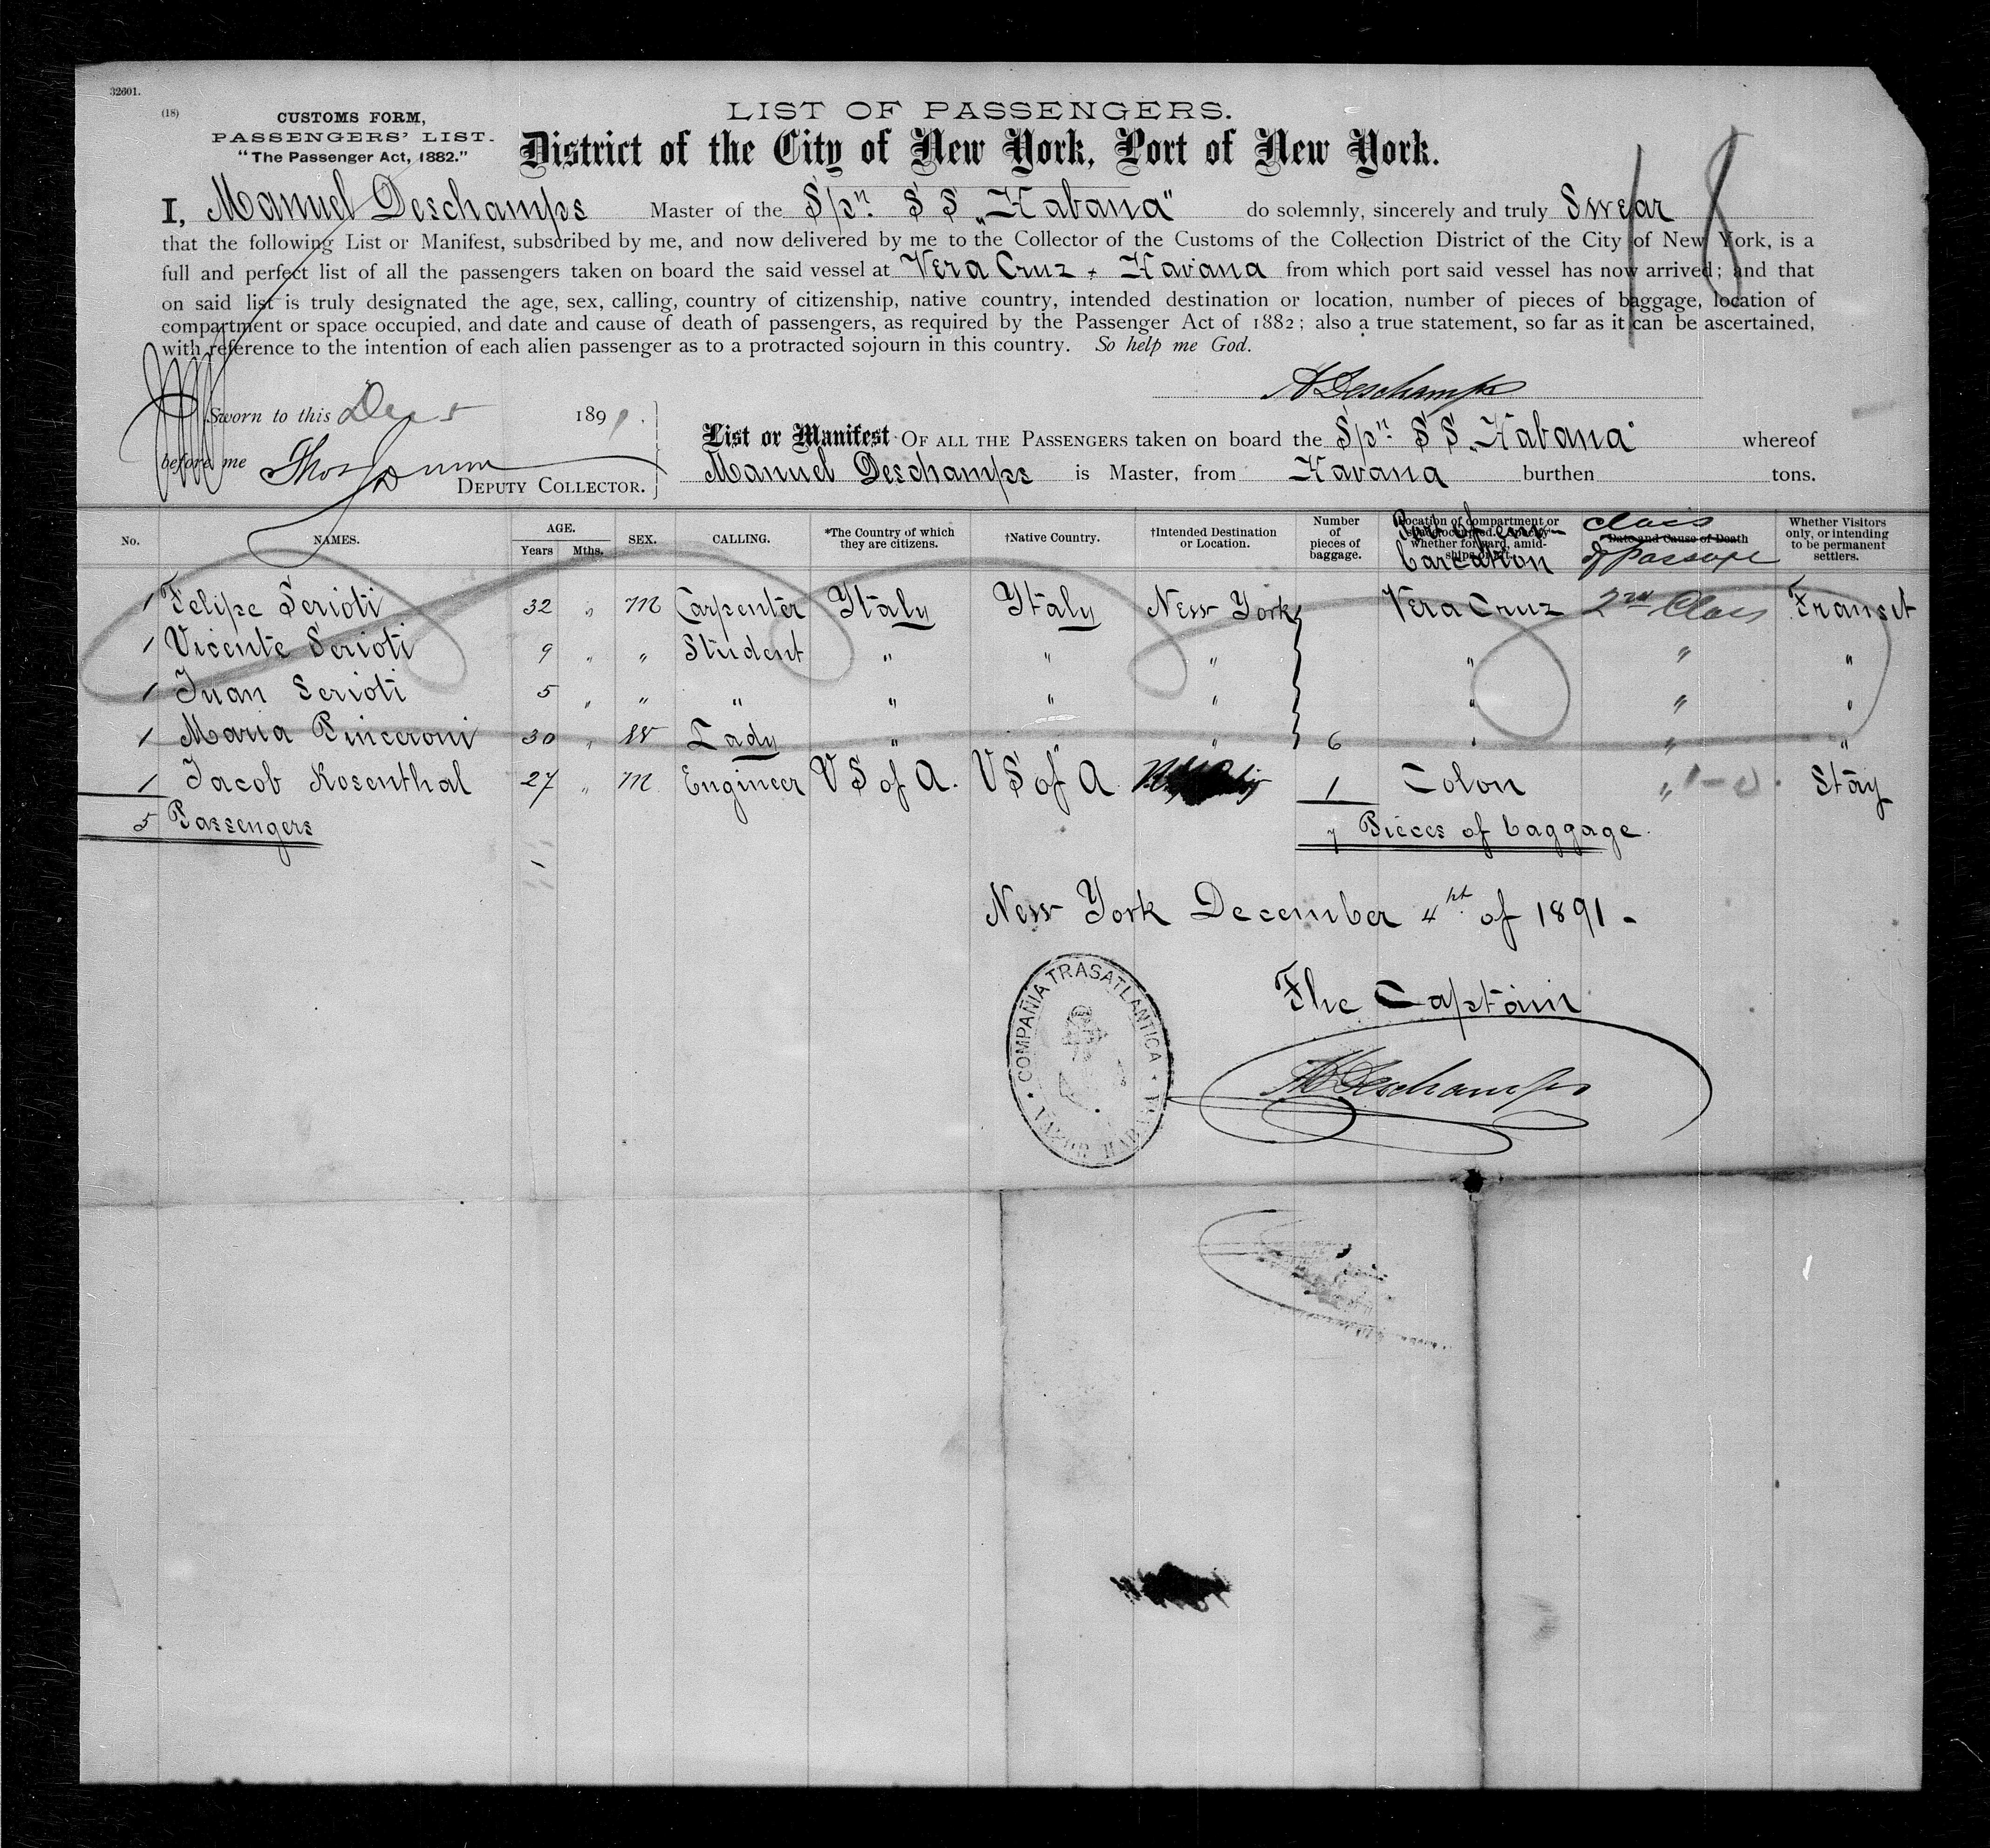 32601.
(18)
CUSTOMS FORM,
PASSENGERS' LIST.
"The Passenger Act, 1882."
LIST OF PASSENGERS.
District of the City of New York, Port of New York.
18
I, Manuel Deschamps Master of the Spn. SS „Habana" do solemnly, sincerely and truly Swear
that the following List or Manifest, subscribed by me, and now delivered by me to the Collector of the Customs of the Collection District of the City of New York, is a
full and perfect list of all the passengers taken on board the said vessel at Vera Cruz + Havana from which port said vessel has now arrived; and that
on said list is truly designated the age, sex, calling, country of citizenship, native country, intended destination or location, number of pieces of baggage, location of
compartment or space occupied, and date and cause of death of passengers, as required by the Passenger Act of 1882; also a true statement, so far as it can be ascertained,
with reference to the intention of each alien passenger as to a protracted sojourn in this country. So help me God.
Deschamps
Sworn to this Dec 5 1891.
before me Thos
DEPUTY COLLECTOR.
List or Manifest OF ALL THE PASSENGERS taken on board the Spn. SS „Habana" whereof
Manuel Deschamps is Master, from Havana burthen tons.
No. NAMES. AGE. Years Mths. SEX. CALLING. *The Country of which they are citizens. †Native Country. †Intended Destination or Location. Number of pieces of baggage. Location of compartment or space occupied. whether forward, amidships or aft. Port of embarcation Date and Cause of Death class of passage Whether Visitors only, or intending to be permanent settlers.
1 Felipe Serioti 32 „ M Carpenter Ytaly Ytaly New York Vera Cruz 2nd Class Transit
1 Vicente Serioti 9 „ „ Student „ „ „ „ „ „
1 Juan Serioti 5 „ „ „ „ „ „ „ „ „
1 Maria Pinceroni 30 „ W Lady „ „ „ 6 „ „ „
1 Jacob Rosenthal 27 „ M Engineer US of A. US of A 1 Colon „ Stay
5 Passengers
7 Pieces of baggage.
New York December 4th of 1891 -
The Captain
M Deschamps
COMPAÑIA TRASATLANTICA
VAPOR HABANA